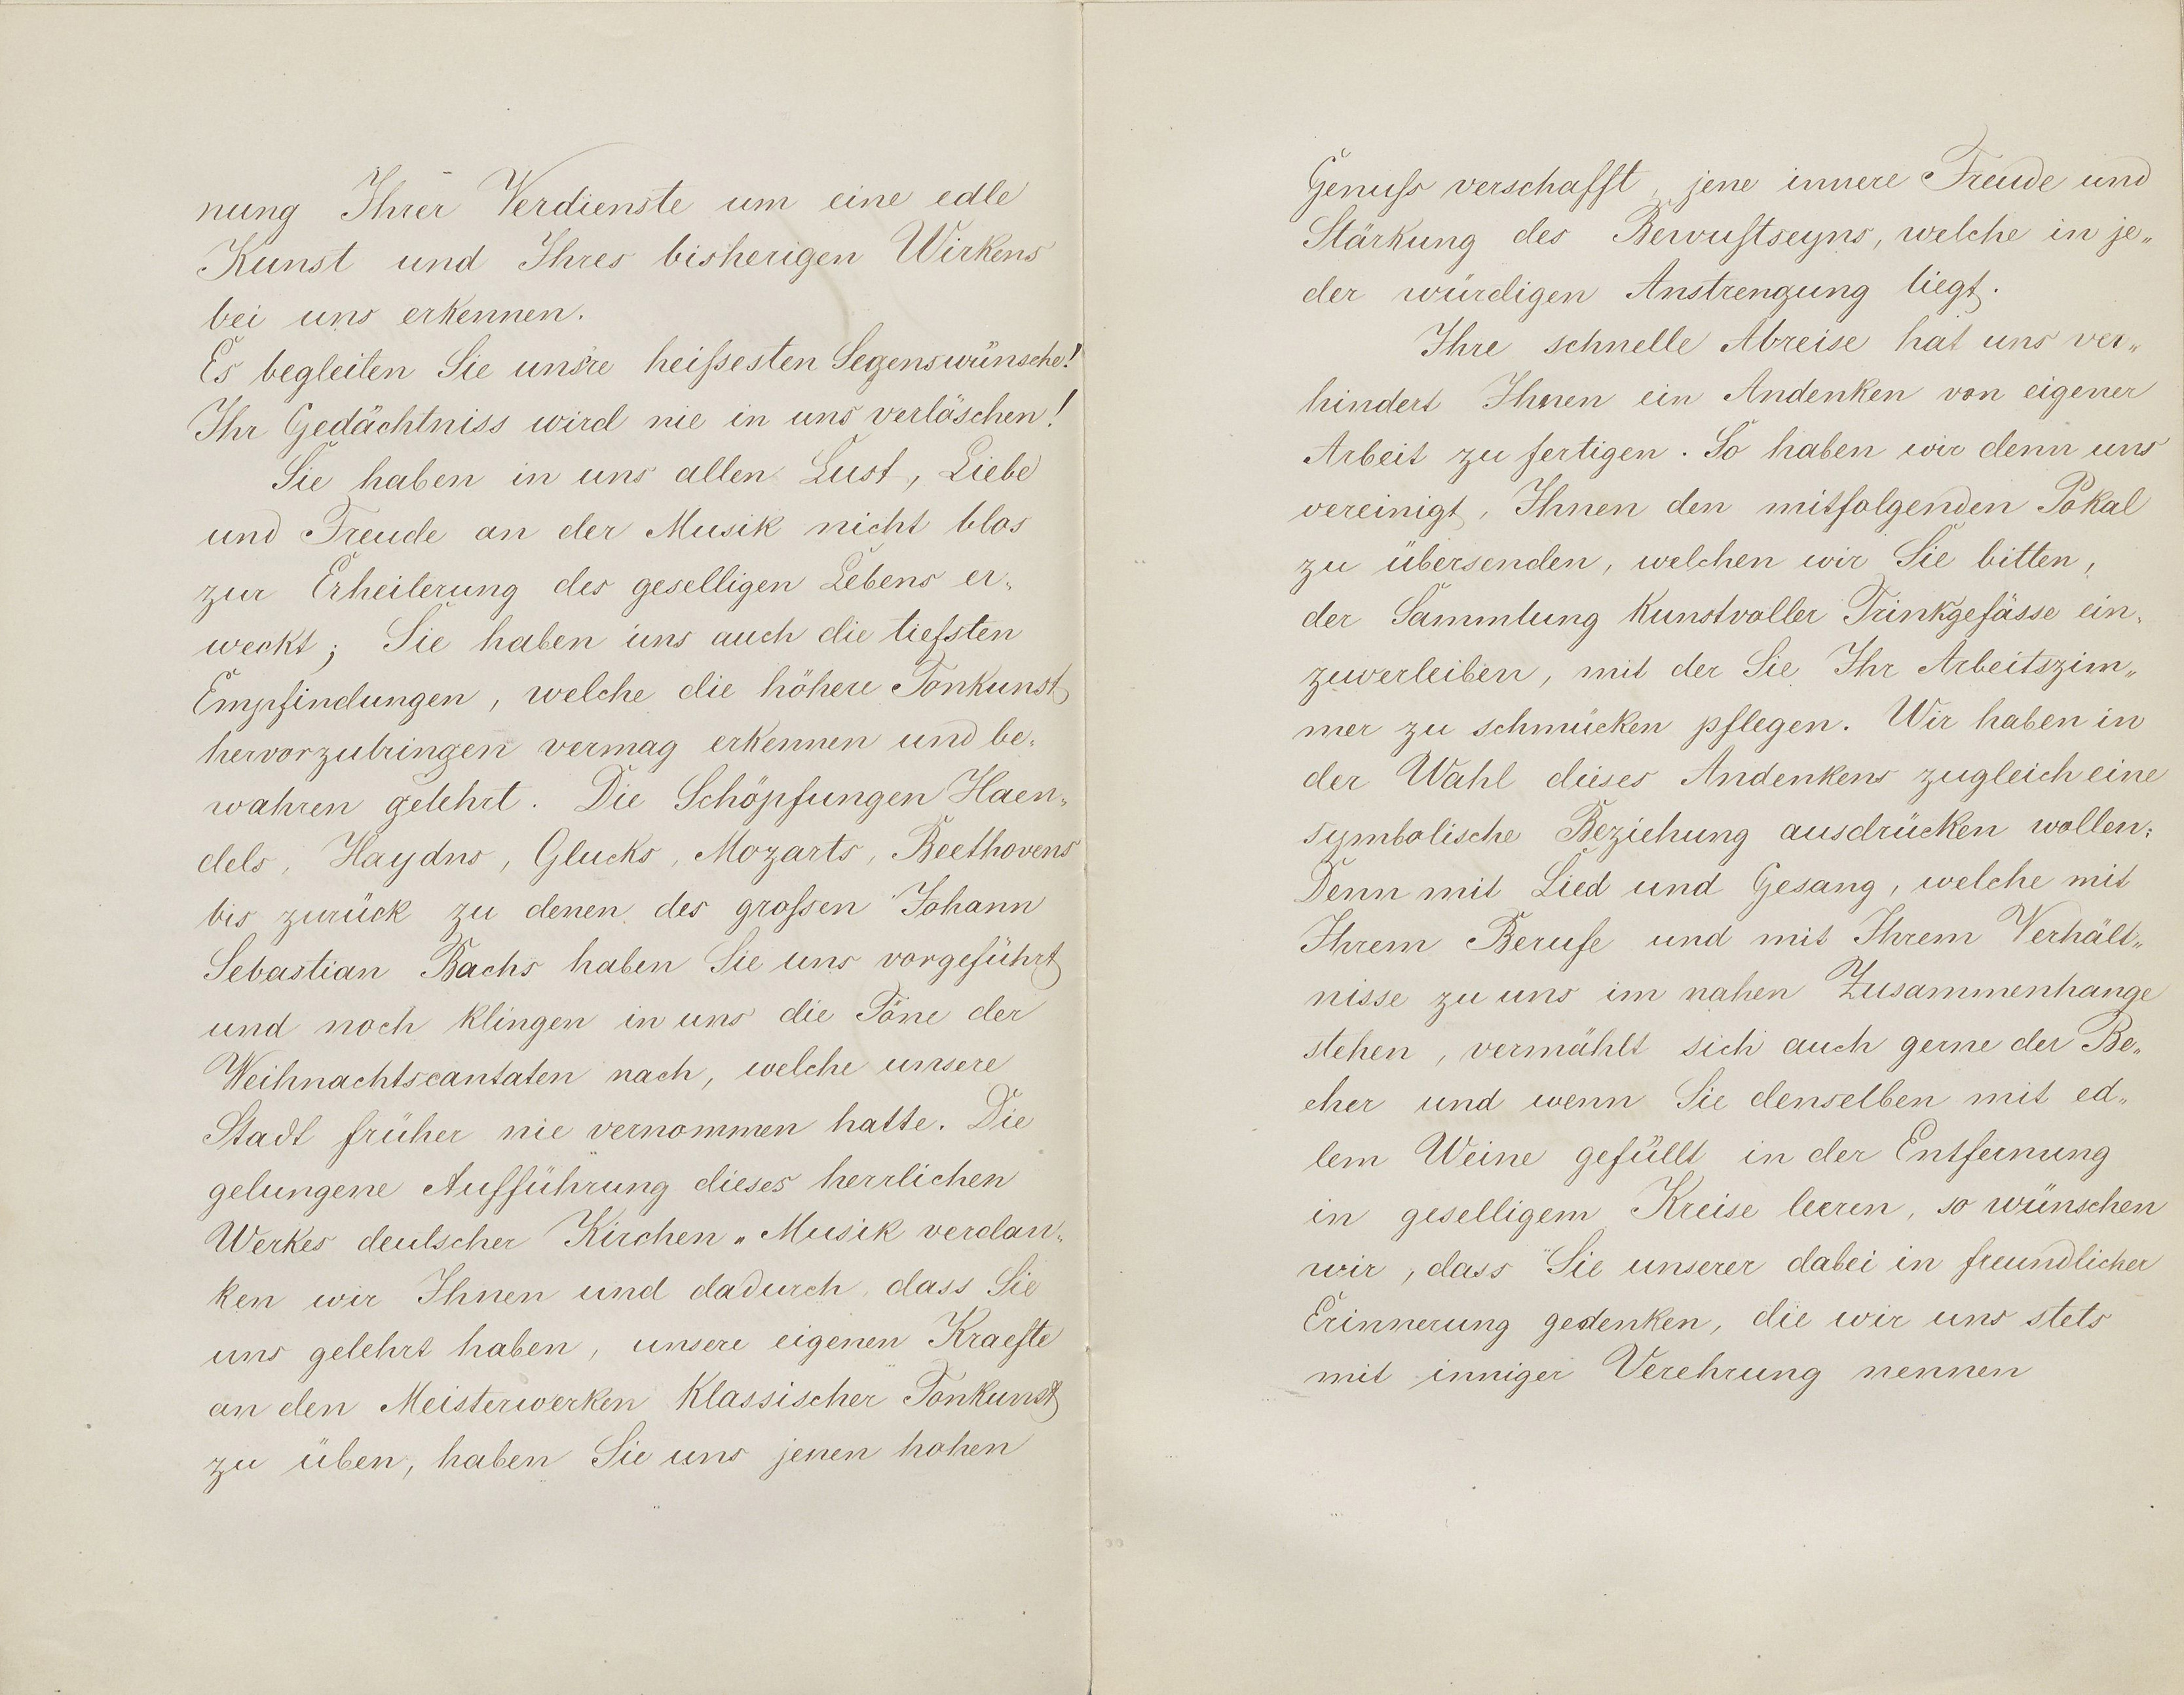 nung Ihrer Verdienste um eine edle
Kunst und Ihres bisherigen Wirkens
bei uns erkennen.
Es begleiten Sie uns're heißesten Segenswünsche!
Ihr Gedächtniss wird nie in uns verlöschen!
Sie haben in uns allen Lust, Liebe
und Freude an der Musik nicht blos
zur Erheiterung des geselligen Lebens er„
weckt; Sie haben uns auch die tiefsten
Empfindungen, welche die höhere Tonkunst
hervorzubringen vermag erkennen und be„
wahren gelehrt. Die Schöpfungen Haen„
dels, Haydns, Glucks, Mozarts, Beethovens
bis zurück zu denen des großen Johann
Sebastian Bachs haben Sie uns vorgeführt
und noch klingen in uns die Töne der
Weihnachtscantaten nach, welche unsere
Stadt früher nie vernommen hatte. Die
gelungene Aufführung dieses herrlichen
Werkes deutscher Kirchen„Musik verdan„
ken wir Ihnen und dadurch, dass Sie
uns gelehrt haben, unsere eigenen Kraefte
an den Meisterwerken klassischer Tonkunst
zu üben, haben Sie uns jenen hohen
Genuß verschafft, jene innere Freude und
Stärkung des Bewußtseyns, welche in je„
der würdigen Anstrengung liegt.
Ihre schnelle Abreise hat uns ver„
hindert Ihnen ein Andenken von eigener
Arbeit zu fertigen. So haben wir denn uns
vereinigt, Ihnen den mitfolgenden Pokal
zu übersenden, welchen wir Sie bitten,
der Sammlung kunstvoller Trinkgefässe ein„
zuverleiben, mit der Sie Ihr Arbeitszim„
mer zu schmücken pflegen. Wir haben in
der Wahl dieses Andenkens zugleich eine
symbolische Beziehung ausdrücken wollen:
Denn mit Lied und Gesang, welche mit
Ihrem Berufe und mit Ihrem Verhält„
nisse zu uns im nahen Zusammenhange
stehen, vermählt sich auch gerne der Be„
cher und wenn Sie denselben mit ed„
lem Weine gefüllt in der Entfernung
in geselligem Kreise leeren, so wünschen
wir, dass Sie unserer dabei in freundlicher
Erinnerung gedenken, die wir uns stets
mit inniger Verehrung nennen